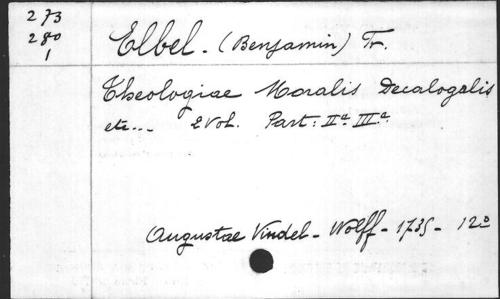 273
280
1
Elbel. (Benjamin) Fr.
Theologiae Moralis Decalogalis
etc... 2 Vol. Part: IIª IIIª.
Augustae Vindel - Wolff - 1735 - 12°